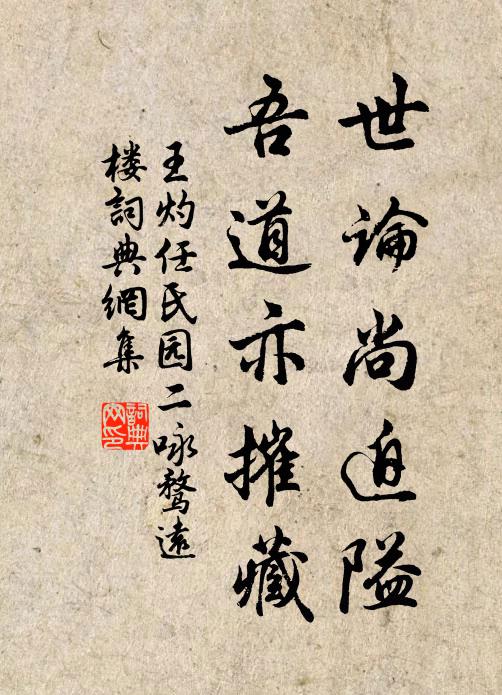 世論尚迫隘
吾道亦摧藏
王灼任民园二咏鹜遠
楼詞典網集
詞典网印